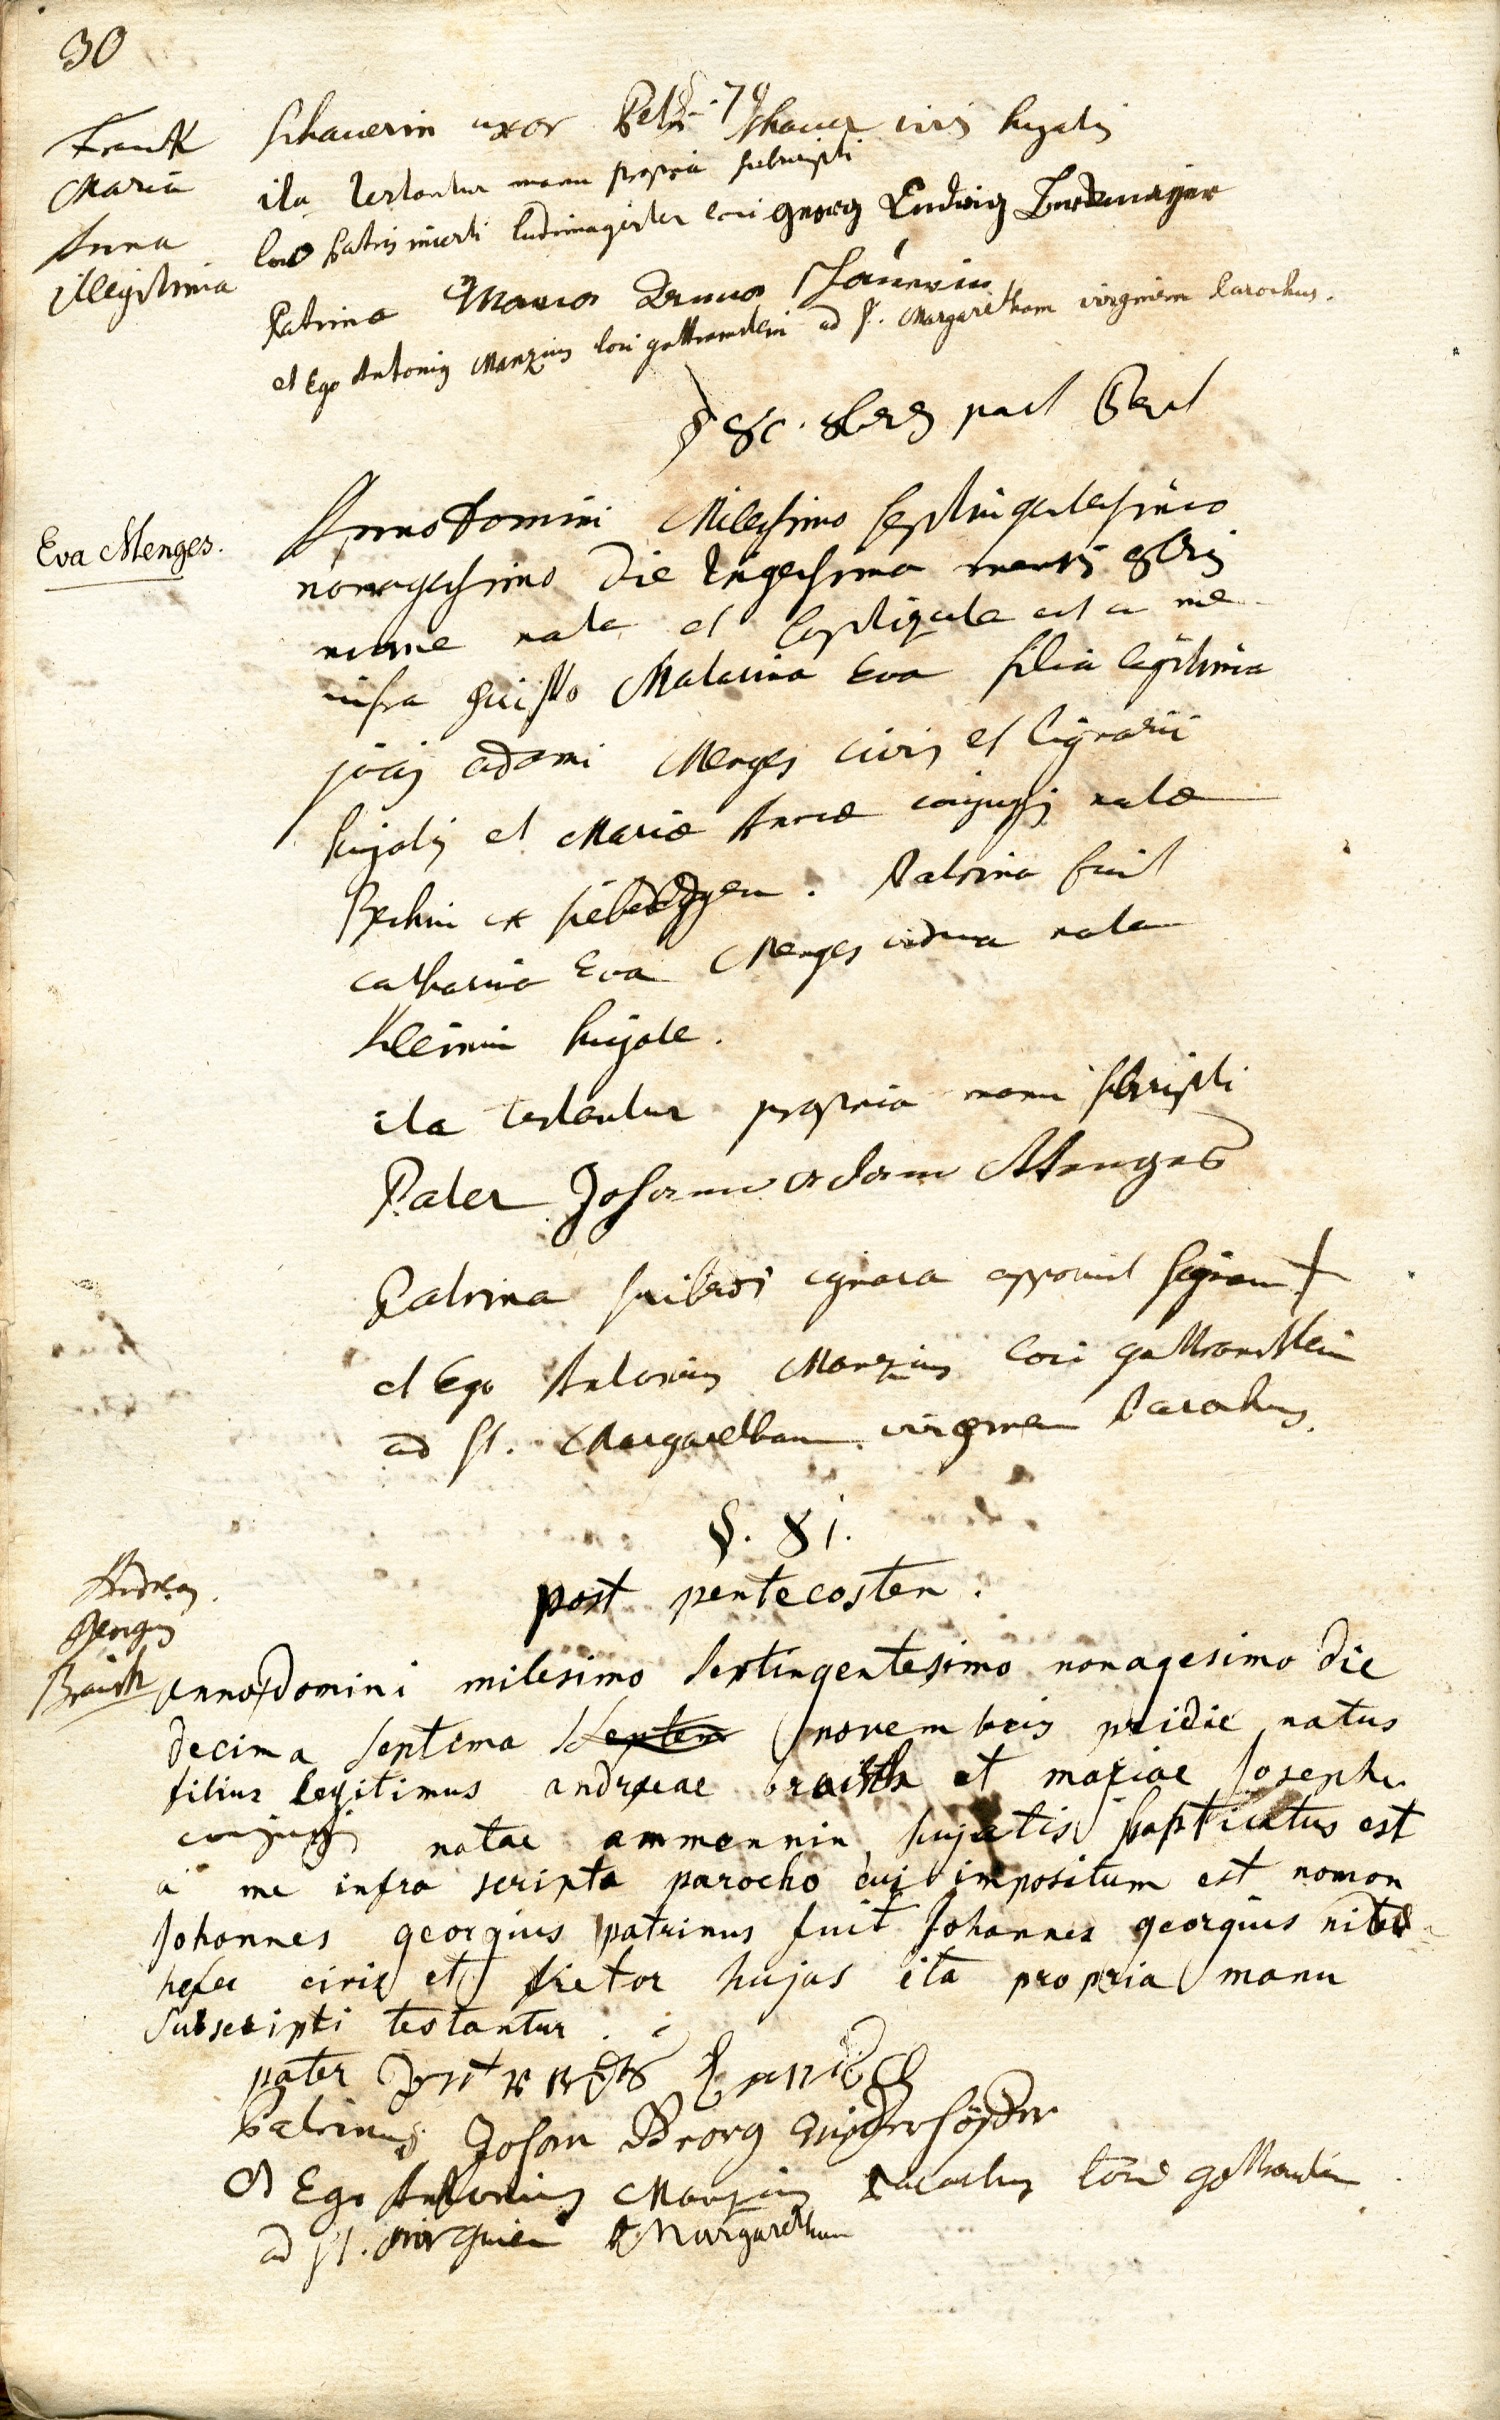 30
Frank
Maria
Anna
illegitima
schauerin uxor Petri schauer civis hujatis
§ 79
ita testantur manu propria subscripti
loco Patris incerti ludimagister loci georg Ludwig
Patrina Maria Anna Schauerin
et Ego Antonius Manzius loci gottramstein ad S. Margaretham virginem Parochus.
§ 80. post Pent
Eva Menges.
Anno Domini Milesimo septingentesimo
nonagessimo die trigessima mensis 8bris
mane nata et baptizata est a me
infra scripto Matarina Eva filia legitima
joais adami Menges civis et lignarii
hujatis et Mariæ Annæ conjugis natæ
ex siebeldingen. Patrina fuit
catharina Eva Menges vidua nata
Kleinin hujate.
ita testantur propria manu subscripti
Pater Johann adam Menges
Patrina scribendi ignara apposuit signum +
et Ego Antonius Manzius loci gottramstein
ad St. Margaretham virginem Parochus.
§. 81.
post pentecosten.
Andreas
Georgius
Braish
anno Domini milesimo septingentesimo nonagesimo die
decima septima septem novembris pridie natus
filius legitimus andreae braish et mariae Josephe
conjugis natae ammennin hujatis baptizatus est
a me infra scripto parocho cui impositum est nomen
Johannes georgius patrinus fuit Johannes georgius nider
hefer civis et hujas ita propria manu
subscripti testantur.
pater
Patrinus Johan Georg
et Ego Antonius Manzius Parochus loci gottramstein
ad St. virginem Margaretham